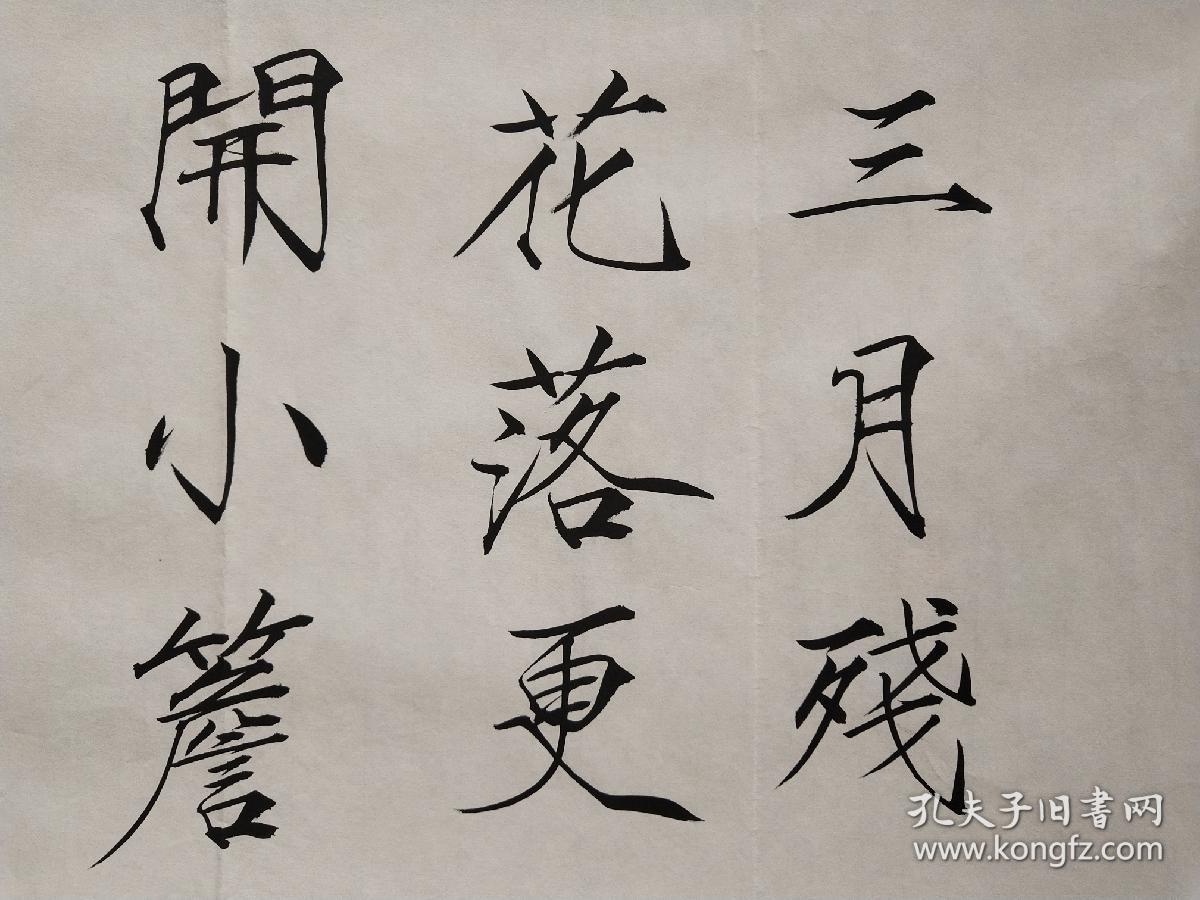 三月殘
花落更
開小簷
孔夫子旧书网
www.kongfz.com